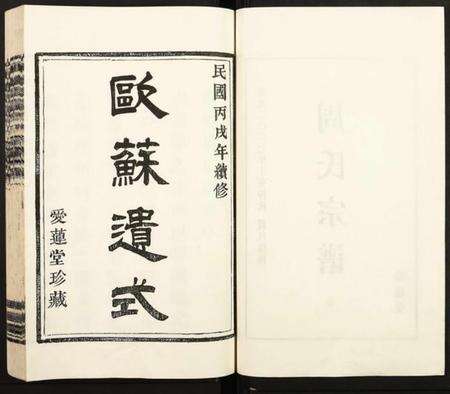 民國丙戌年續修
歐蘇遺式
愛蓮堂珍藏
周氏宗譜